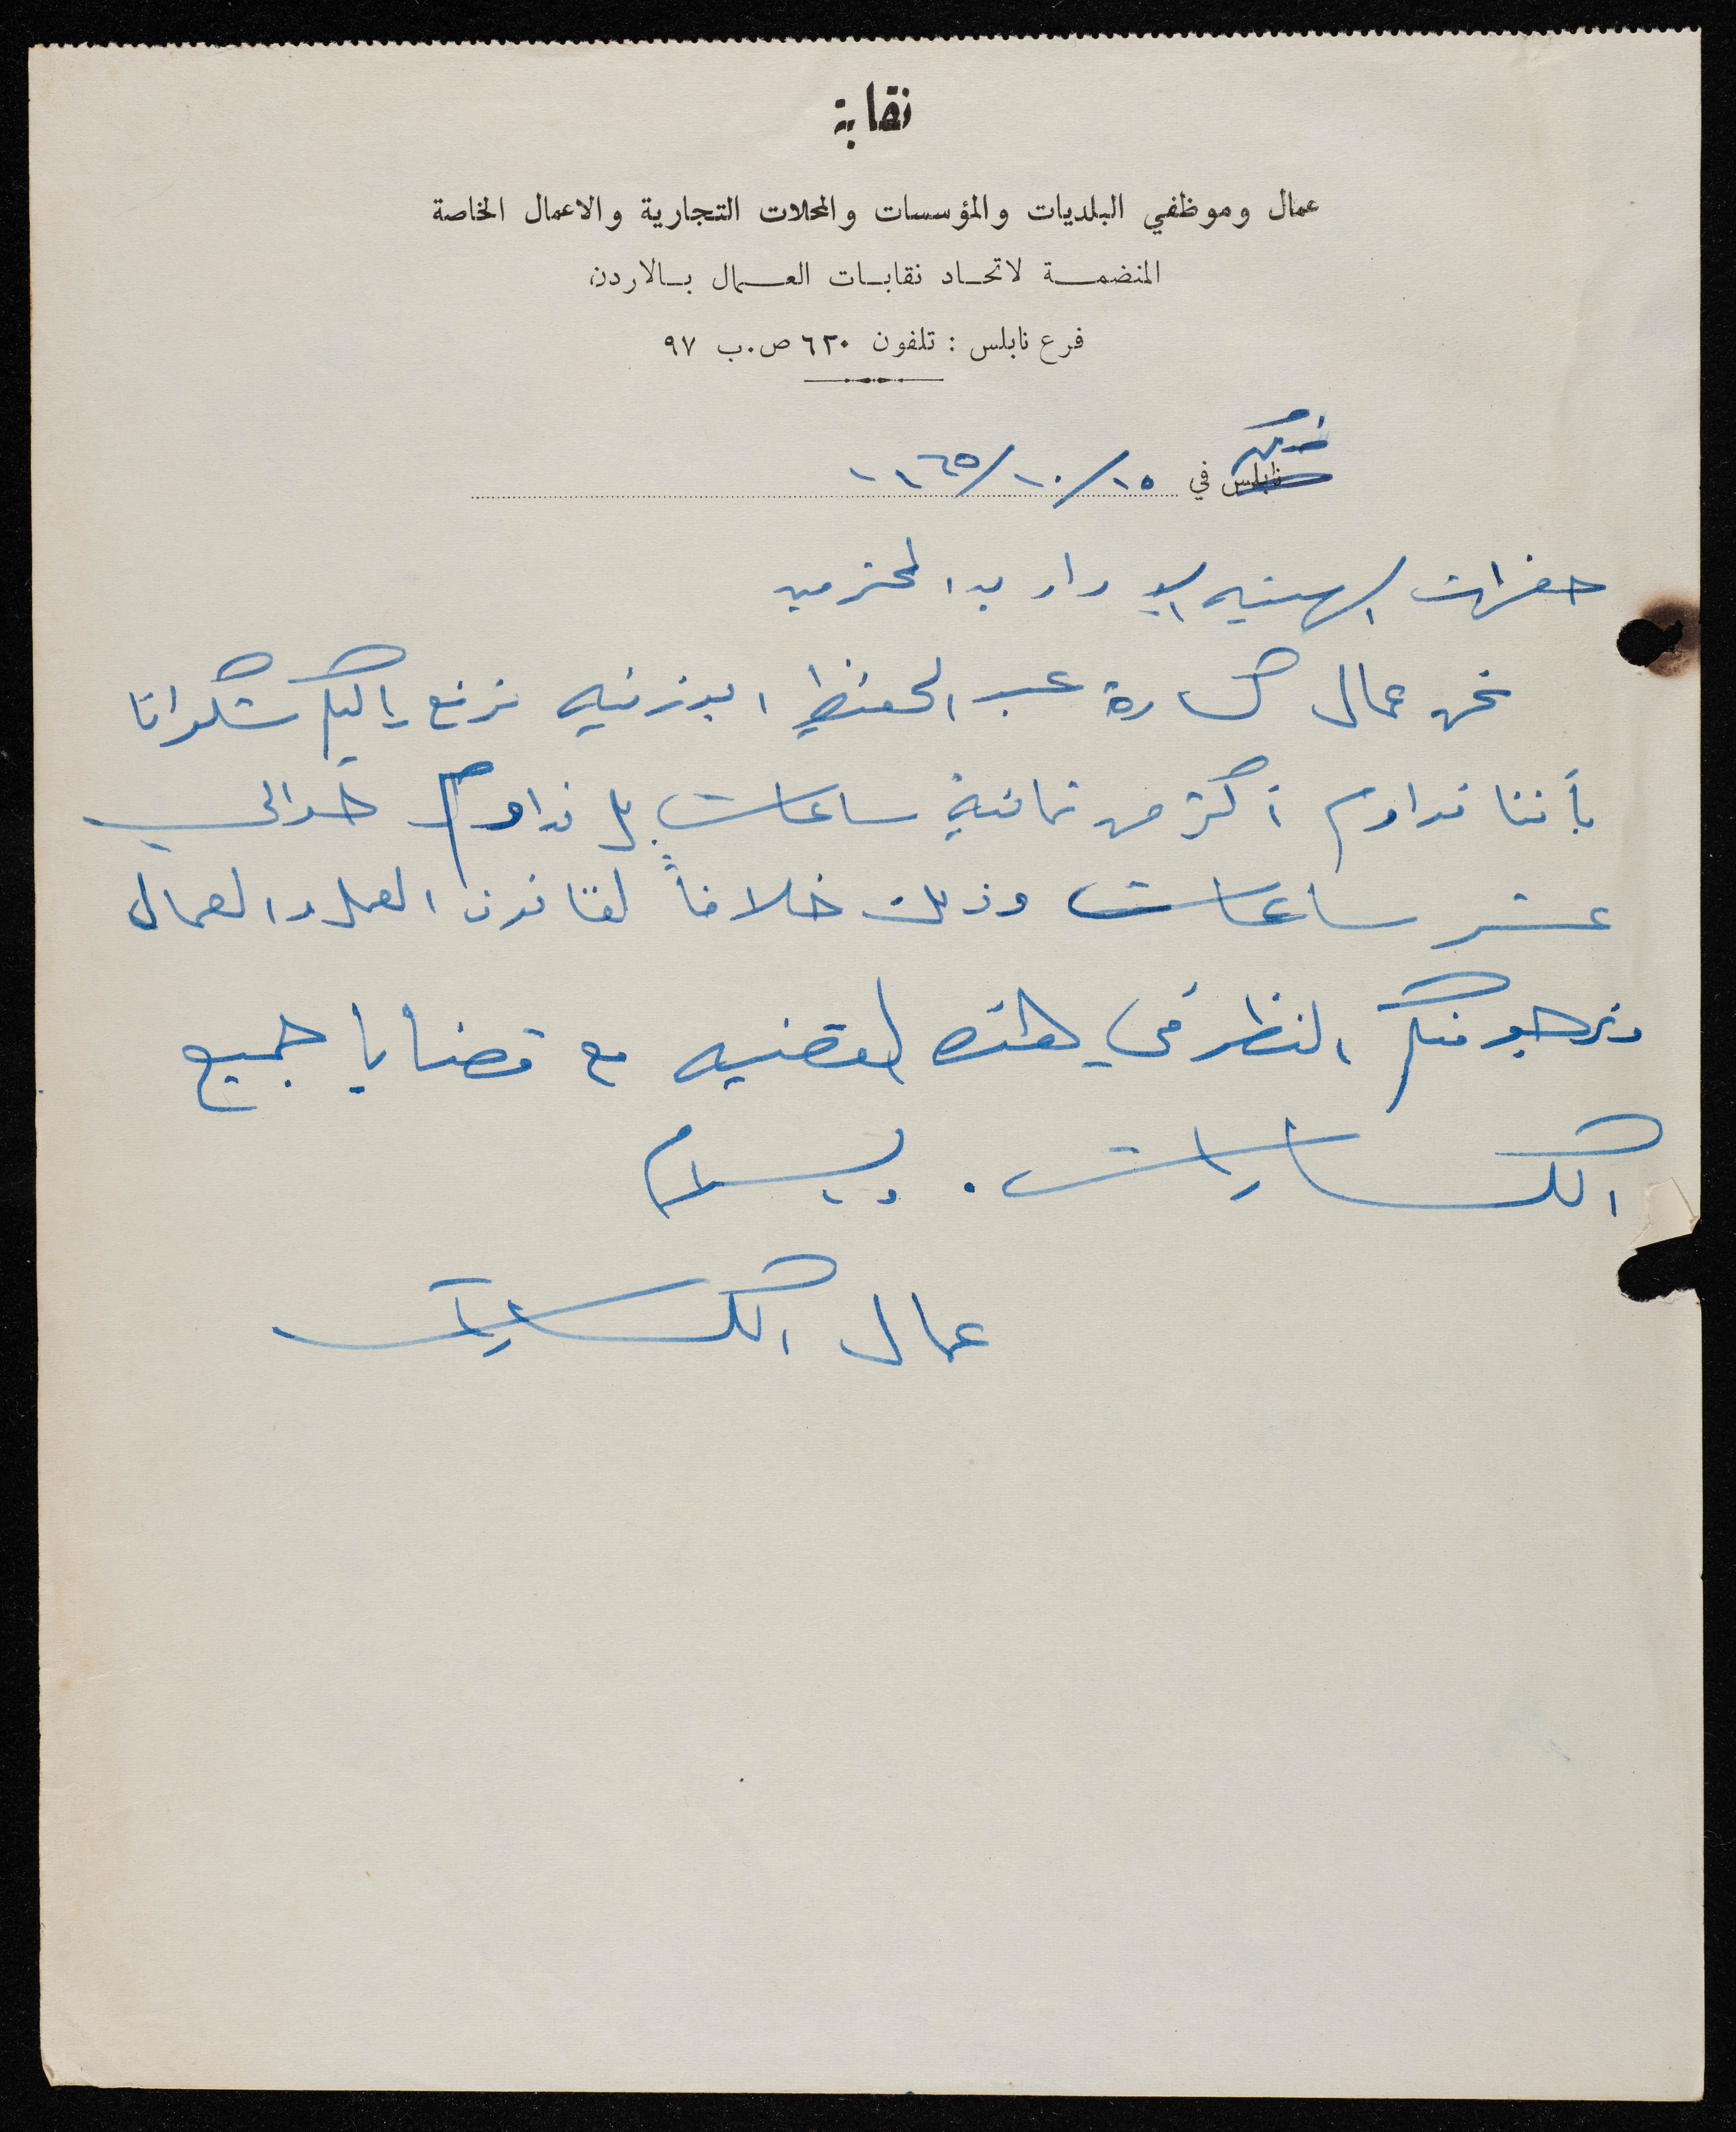 نقابة
عمال وموظفي البلديات والمؤسسات والمحلات التجارية والاعمال الخاصة
المنضمة لاتحاد نقابات العمال بالاردن
فرع نابلس : تلفون ٦٢٠ ص.ب ٩٧
نابلس في ١٥/١٠/١٩٦٥
حضرات الهيئه الإداريه المحترمين
نحن عمال كسارة عبد الحفيظ ابو زنيه نرفع إليكم شكوانا
بأننا نداوم أكثر من ثمانية ساعات بل نداوم حوالي
عشر ساعات وذلك خلافاً لقانون العمل والعمال
ونرجو منكم النظر في هذه القضيه مع قضايا جميع
الكسارات . ويسلام
عمال الكسارات